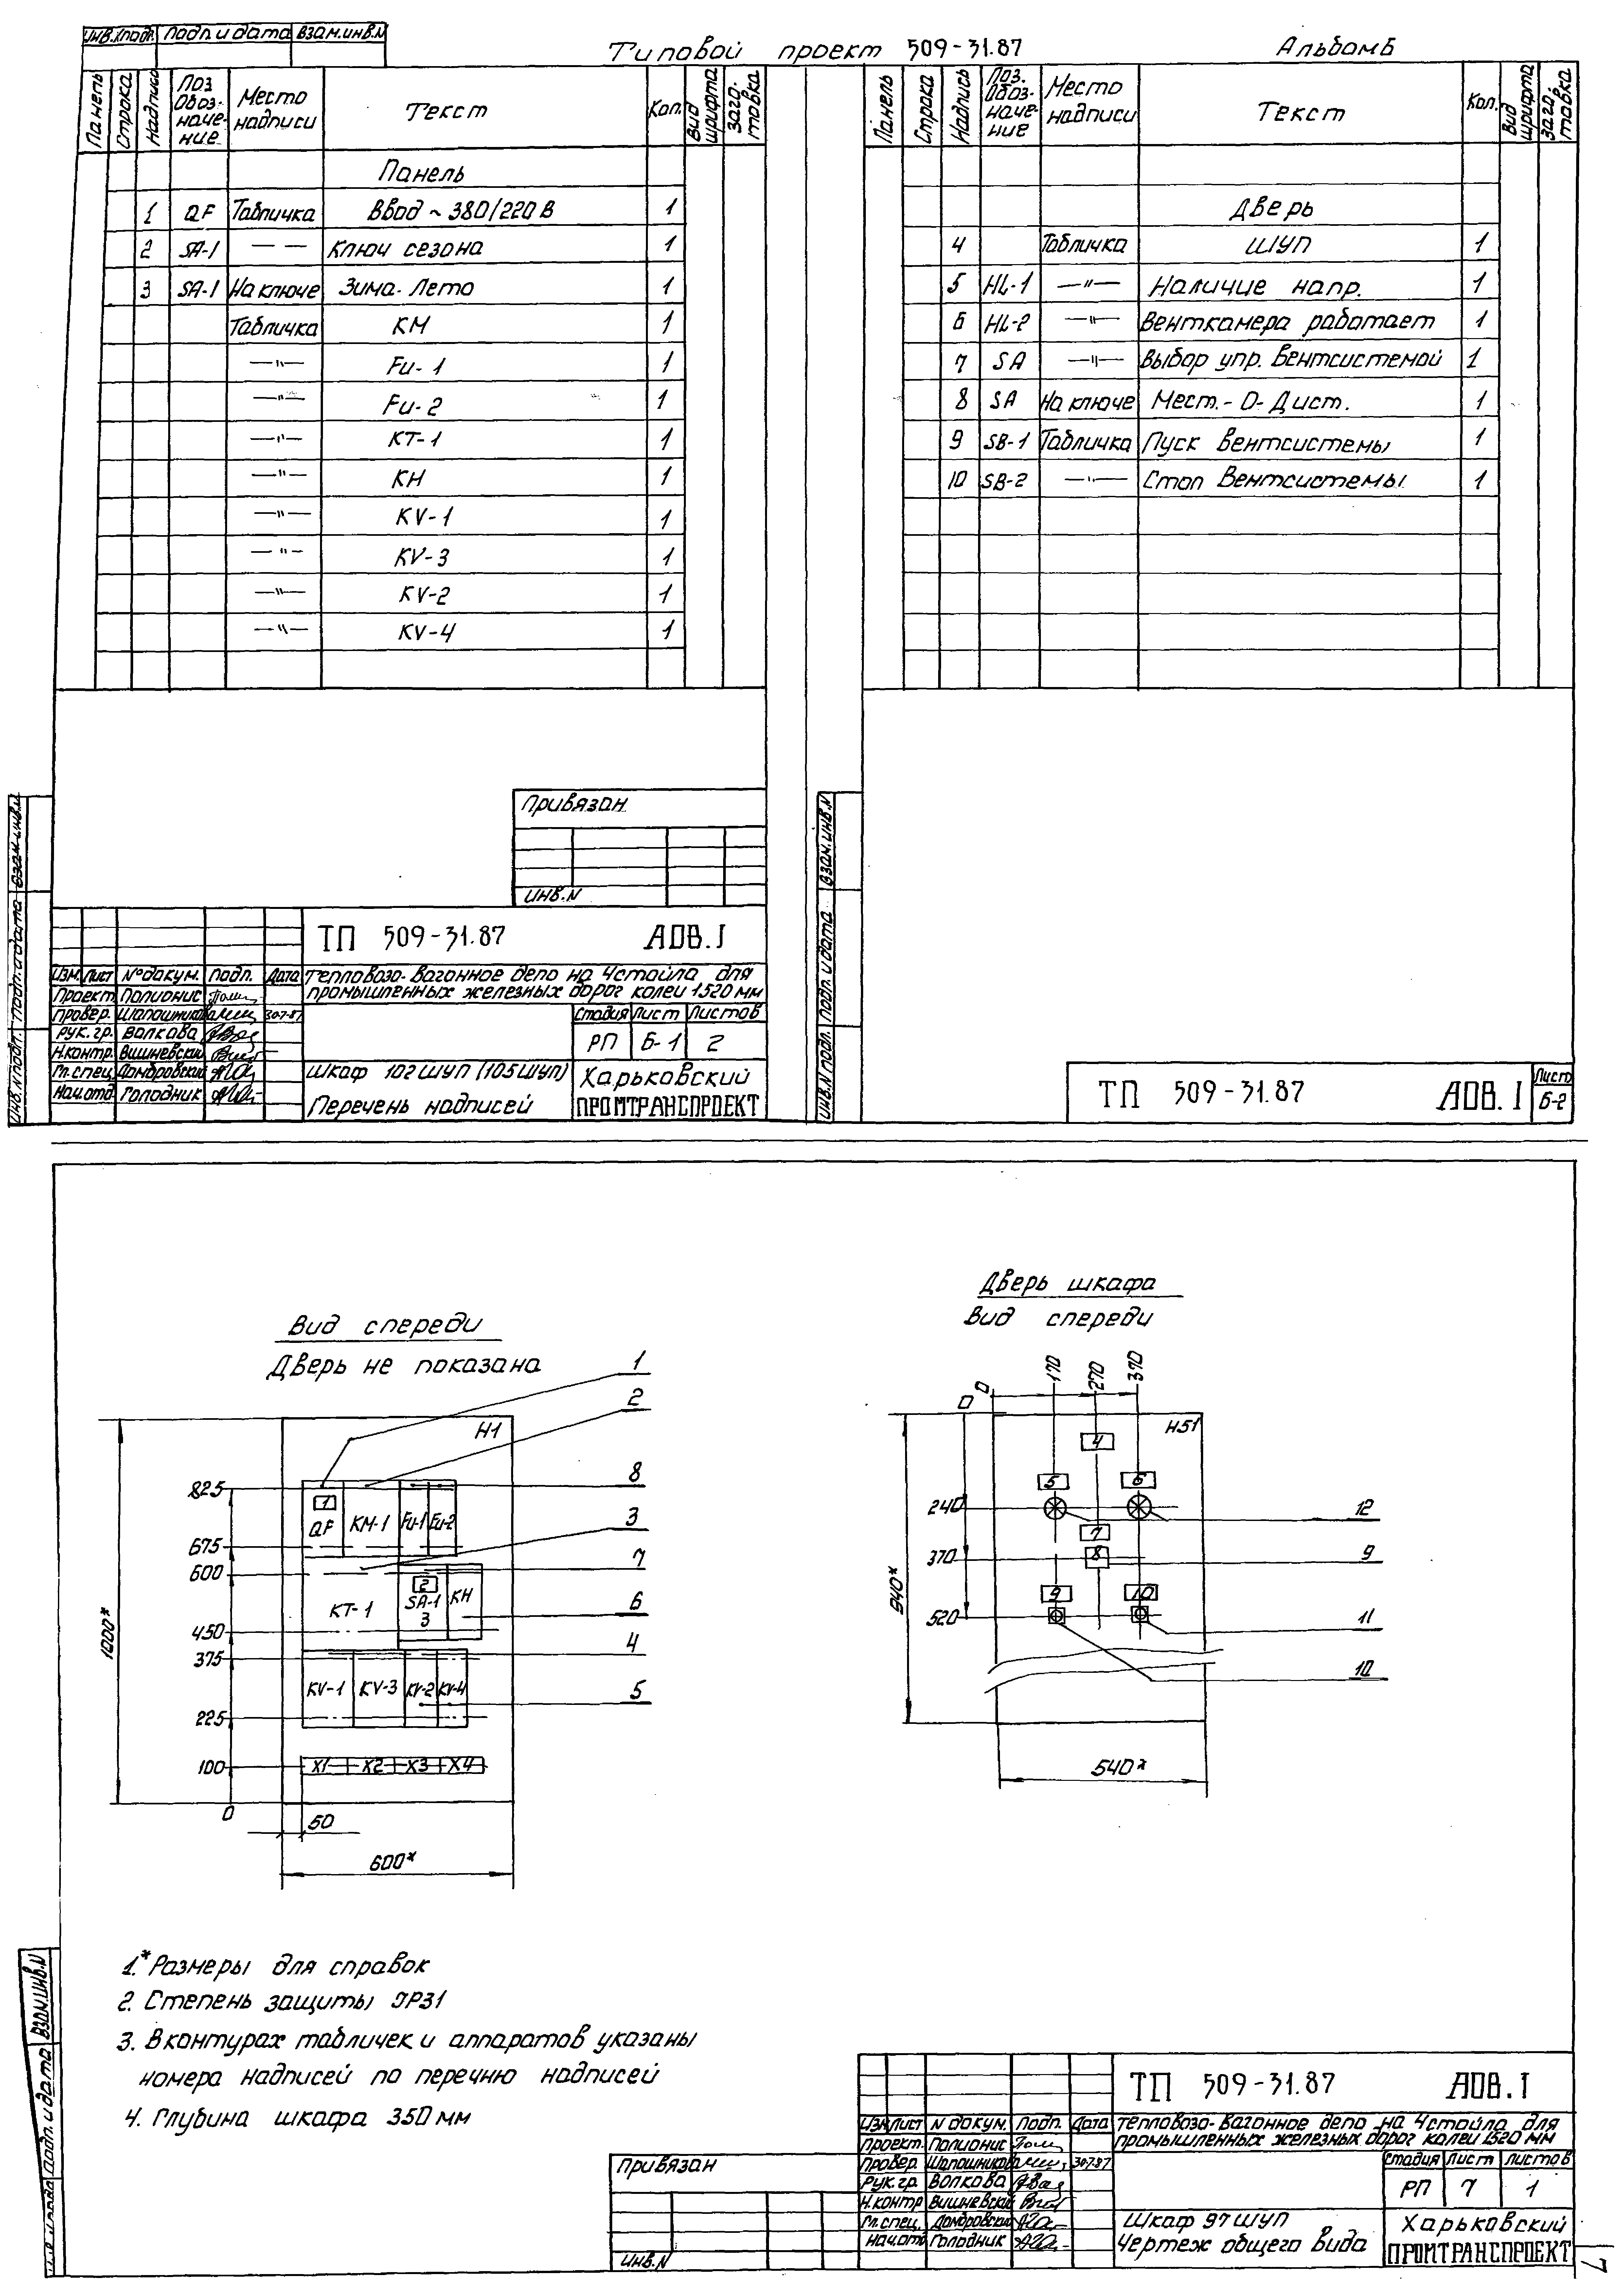 Инв.N подл. Подп. и дата Взам.инв.N
Типовой проект 509-31.87 Альбом Б
Панель Строка Надпись Поз. Обозначение Место надписи Текст Кол. Вид шрифта Заготовка
Панель
1 QF Табличка Ввод ~ 380/220 В 1
2 SA-1 — — Ключ сезона 1
3 SA-1 На ключе Зима-Лето 1
Табличка КМ 1
—"— Fu-1 1
—"— Fu-2 1
—"— КТ-1 1
—"— КН 1
—"— KV-1 1
—"— KV-3 1
—"— KV-2 1
—"— KV-4 1
Привязан
Инв.N
ТП 509-31.87 АОВ.I
Изм. Лист N°докум. Подп. Дата
Тепловозо-вагонное депо на 4 стойла для
промышленных железных дорог колеи 1520 мм
Проект. Полионис
Провер. Шапошников 30.7.87
Рук.гр. Волкова
Н.контр. Вишневский
Гл.спец. Домбровский
Нач.отд Голодник
Стадия Лист Листов
РП Б-1 2
Шкаф 102 ШУП (105 ШУП)
Перечень надписей
Харьковский
ПРОМТРАНСПРОЕКТ
Инв.N подл. Подп. и дата Взам.инв.N
Панель Строка Надпись Поз. Обозначение Место надписи Текст Кол. Вид шрифта Заготовка
Дверь
4 Табличка ШУП 1
5 HL-1 —"— Наличие напр. 1
6 HL-2 —"— Венткамера работает 1
7 SA —"— Выбор упр. вентсистемой 1
8 SA На ключе Мест.-О-Дист. 1
9 SB-1 Табличка Пуск вентсистемы 1
10 SB-2 —"— Стоп вентсистемы 1
Инв.N подл. Подп. и дата Взам.инв.N
ТП 509-31.87 АОВ.I
Лист
Б-2
Вид спереди
Дверь не показана
Н1
1
2
8
3
7
6
4
5
825
675
600
450
375
225
100
0
1000*
1 QF KM-1 Fu-1 Fu-2
КТ-1 2 SA-1 3 КН
KV-1 KV-3 KV-2 KV-4
X1 X2 X3 X4
50
600*
Дверь шкафа
Вид спереди
0 170 270 370
0
Н51
4
5 6
240
7
8
370
9 10
520
940*
540*
12
9
11
10
1.* Размеры для справок
2. Степень защиты IP31
3. В контурах табличек и аппаратов указаны
номера надписей по перечню надписей
4. Глубина шкафа 350 мм
Подп. и дата Взам.инв.N
Привязан
Инв.N
ТП 509-31.87 АОВ.I
Изм Лист N докум. Подп. Дата
Тепловозо-вагонное депо на 4 стойла для
промышленных железных дорог колеи 1520 мм
Проект. Полионис
Провер. Шапошников 30.7.87
Рук.гр. Волкова
Н.контр Вишневский
Гл.спец. Домбровский
Нач.отд Голодник
Стадия Лист Листов
РП 7 1
Шкаф 97 ШУП
Чертеж общего вида
Харьковский
ПРОМТРАНСПРОЕКТ
7